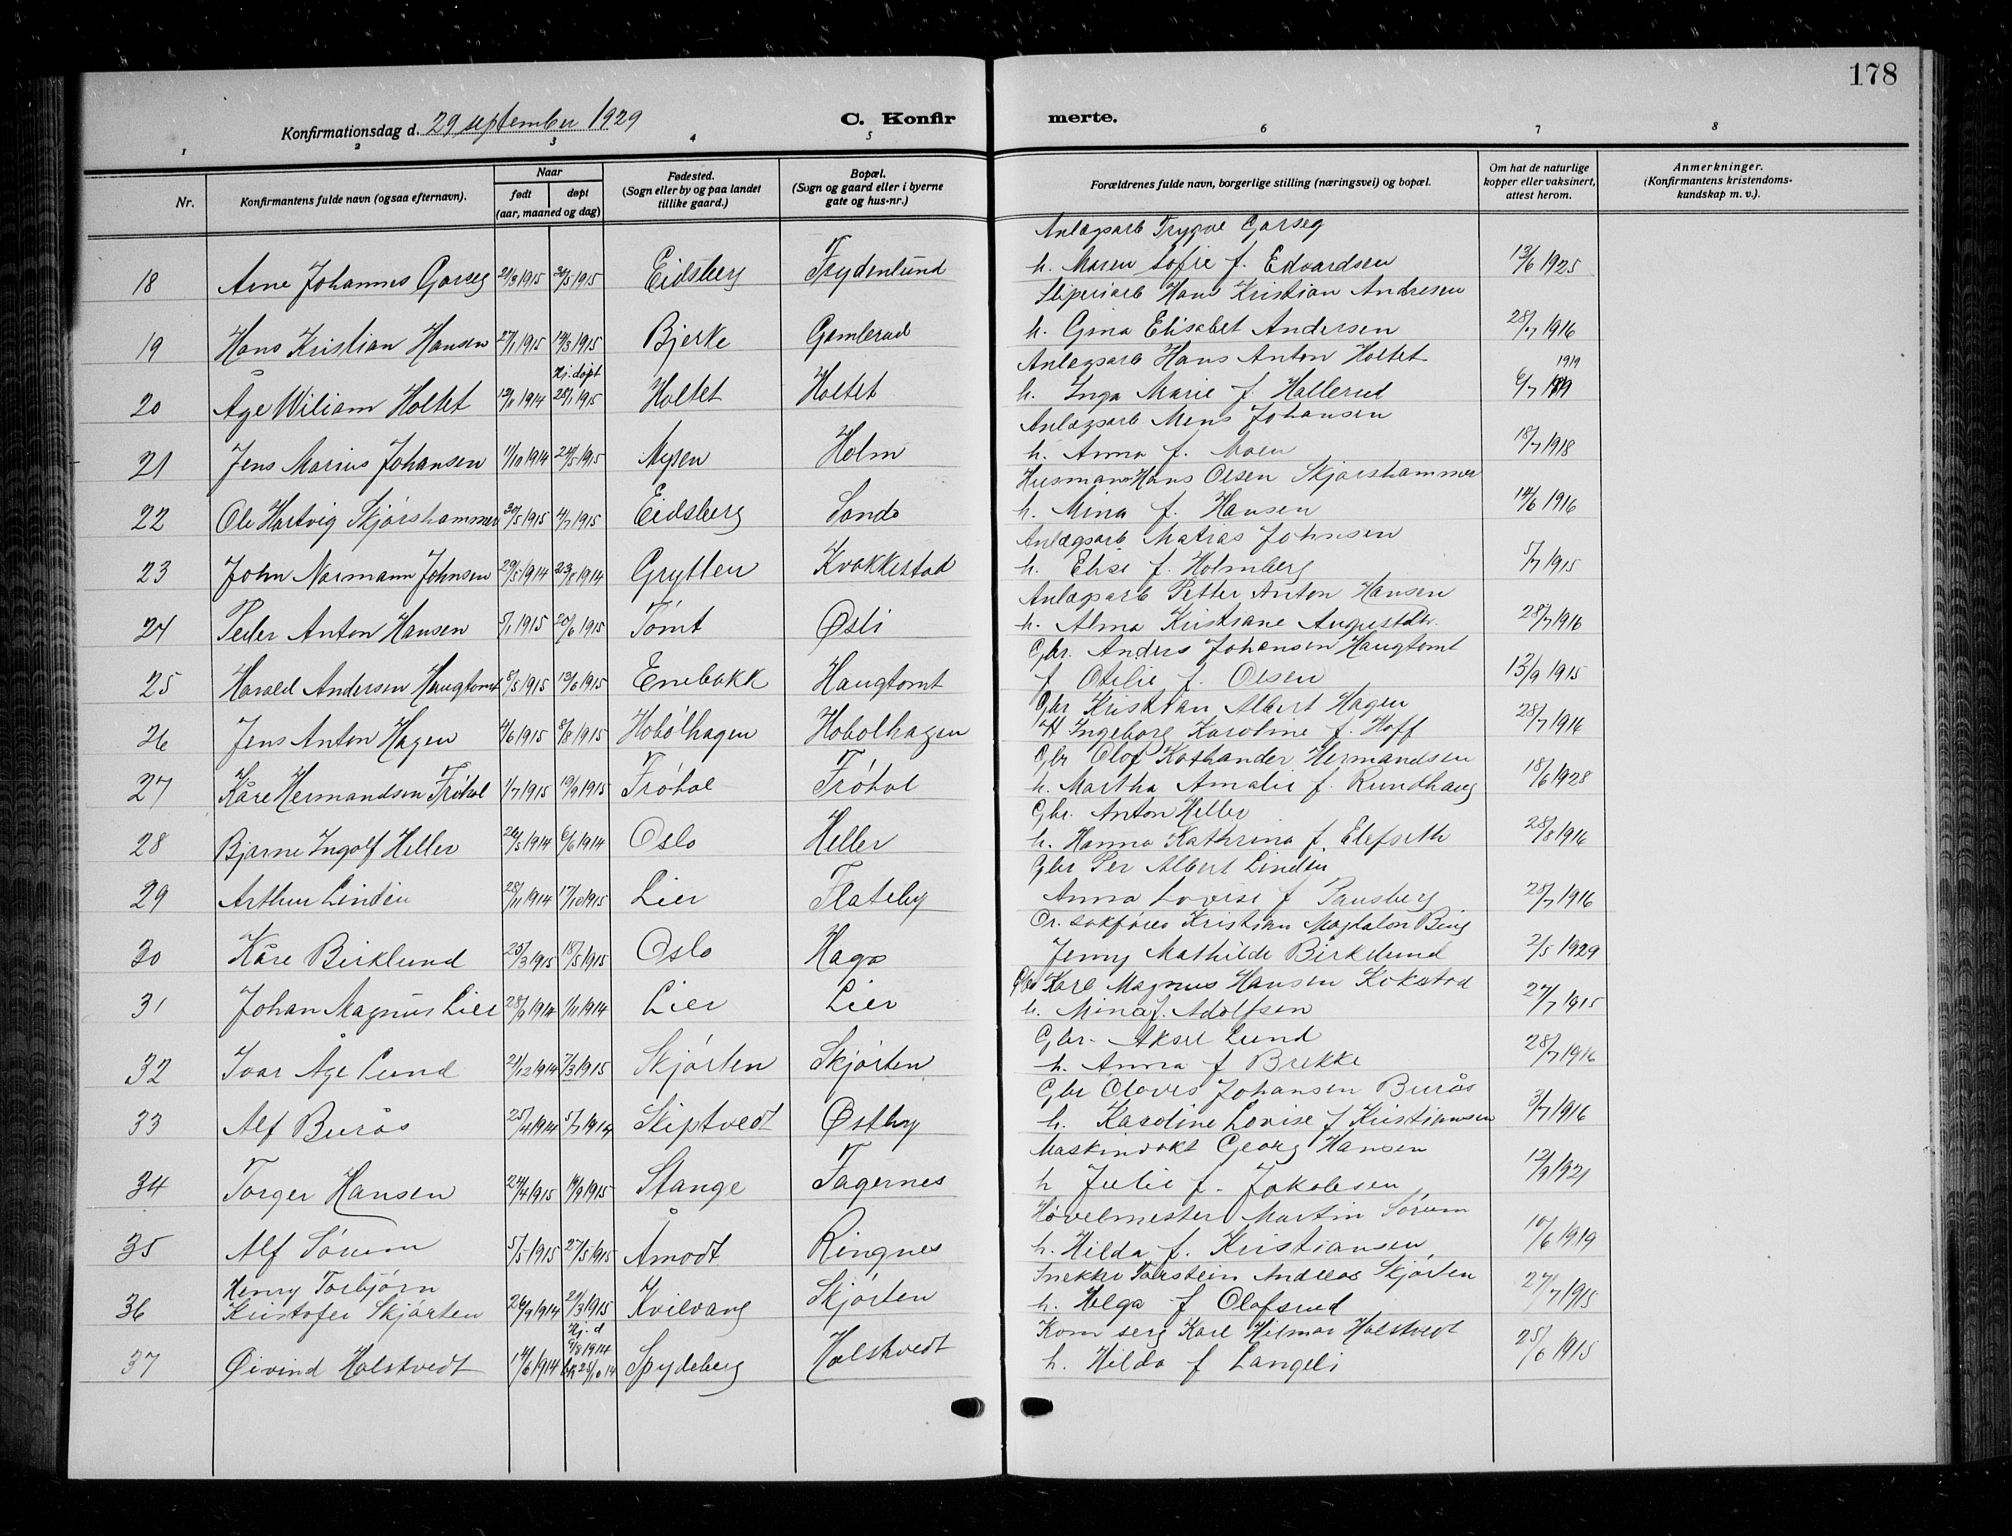 178
Konfirmationsdag d. 29 september 1929
C. Konfir
merte.
1 2 3 4 5 6 7 8
Nr.
Konfirmantens fulde navn (ogsaa efternavn).
Naar
født døpt
(aar, maaned og dag)
Fødested.
(Sogn eller by og paa landet
tillike gaard.)
Bopæl.
(Sogn og gaard eller i byerne
gate og hus-nr.)
Forældrenes fulde navn, borgerlige stilling (næringsvei) og bopæl.
Om hat de naturlige
kopper eller vaksinert,
attest herom.
Anmerkninger.
(Konfirmantens kristendoms-
kundskap m. v.)
Anlægsarb Trygve Garseg
18 Arne Johannes Garseg 21/3 1915 1915 Eidsberg Frydenlund h. Maren Sofie f. Edvardsen 13/6 1925
Sliperiarb Hans Kristian Andresen
19 Hans Kristian Hansen 27/1 1915 14/3 1915 Bjerke Gamlerud h. Gina Elisabet Andersen 28/7 1916
Anlægsarb Hans Anton Holtet
Hj. døpt 1919
20 Åge Wiliam Holtet 1914 28/1 1915 Holtet Holtet h. Inga Marie f. Hallerud 6/7
Anlægsarb Mens Johansen
21 Jens Marius Johansen 1/10 1914 24/5 1915 Mysen Holm h. Anna f. Moen 18/7 1918
Husmann Hans Olsen Skjørshammer
22 Ole Hartvig Skjørshammer 30/5 1915 4/7 1915 Eidsberg Sando h. Mina f. Hansen 14/6 1916
Anlægsarb Matias Johnsen
23 John Normann Johnsen 29/5 1914 23/8 1914 Grytten Kvakkestad h. Elise f. Holmberg 5/7 1915
Anlægsarb Petter Anton Hansen
24 Peder Anton Hansen 5/1 1915 20/6 1915 Tømt Østi h. Alma Kristiane Augustdtr. 28/7 1916
Gbr. Anders Johansen Haugtomt
25 Harald Andersen Haugtomt 8/5 1915 13/6 1915 Enebakk Haugtomt f Otilie f. Olsen 13/9 1915
Gbr Kristian Albert Hagen
26 Jens Anton Hagen 4/6 1915 8/8 1915 Hobølhagen Hobølhagen H Ingeborg Karoline f. Hoff 28/7 1916
Gbr Olof Kathander Hermandsen
27 Kåre Hermandsen Frøhol 1/7 1915 19/9 1915 Frøhol Frøhol h. Martha Amalie f. Rundhaug 18/6 1928
Gbr. Anton Heller
28 Bjarne Ingolf Heller 26/3 1914 6/6 1914 Oslo Heller h. Hanna Kathrina f. Elefseth 28/8 1916
Gbr Per Albert Linden
29 Arthur Linden 28/11 1914 17/10 1915 Lier Flateby Anna Lovise f Tansberg 28/7 1916
Or. sakfører Kristian Magdalon Bing
30 Kåre Birklund 25/3 1915 18/5 1915 Oslo Haga Jenny Mathilde Birkelund 2/5 1929
Gbr Karl Magnus Hansen Kokstad
31 Johan Magnus Lier 28/9 1914 1/11 1914 Lier Lier h. Mina f. Adolfsen 27/7 1915
Gbr. Aksel Lund
32 Ivar Åge Lund 21/12 1914 7/3 1915 Skjørten Skjørten h. Anna f Brekke 28/7 1916
Gbr Olaves Johansen Burås
33 Alf Burås 25/4 1914 5/7 1914 Skiptvedt Østby h. Karoline Lovise f Kristiansen 3/7 1916
Maskinvakt Georg Hansen
34 Torger Hansen 24/4 1915 19/9 1915 Stange Fagernes h Julie f. Jakobsen 12/9 1921
Høvelmester Martin Sørum
35 Alf Sørum 5/5 1915 27/5 1915 Åmodt Ringnes h. Hilda f. Kristiansen 10/6 1919
Henny Torbjørn Snekker Torstein Andreas Skjørten
36 Kristofer Skjørten 26/9 1914 21/3 1915 Kvilvang Skjørten h. Helga f Olafsrud 27/7 1915
Hj. d Kom serg Karl Hilmar Halstvedt
37 Øivind Halstvedt 14/6 1914 9/8 1914 25/10 14 Spydeberg Halstvedt h. Hilda f Langeli 25/6 1915